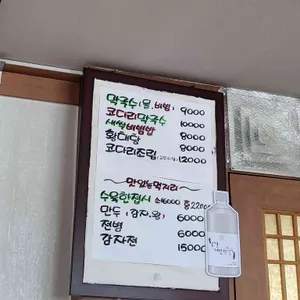 막국수 (물,비빔) 9000
코다리막국수 10000
새싹비빔밥 8000
황태탕 9000
코다리조림 12000
~맛있는먹거리~
수육한접시 소16000 중22000
만두 (감자,왕) 6000
전병 6000
감자전 15000